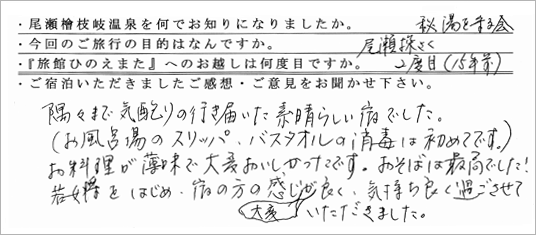 ・尾瀬檜枝岐温泉を何でお知りになりましたか。 秘湯を守る会
・今回のご旅行の目的はなんですか。 尾瀬探さく
・『旅館ひのえまた』へのお越しは何度目ですか。 2度目(15年前)
・ご宿泊いただきましたご感想・ご意見をお聞かせ下さい。
隅々まで気配りの行き届いた素晴らしい宿でした。
(お風呂場のスリッパ・バスタオルの消毒は初めてです。)
お料理が薄味で大変おいしかったです。おそばは最高でした!
若女将をはじめ、宿の方の感じが良く、気持ち良く過ごさせて
大変 いただきました。